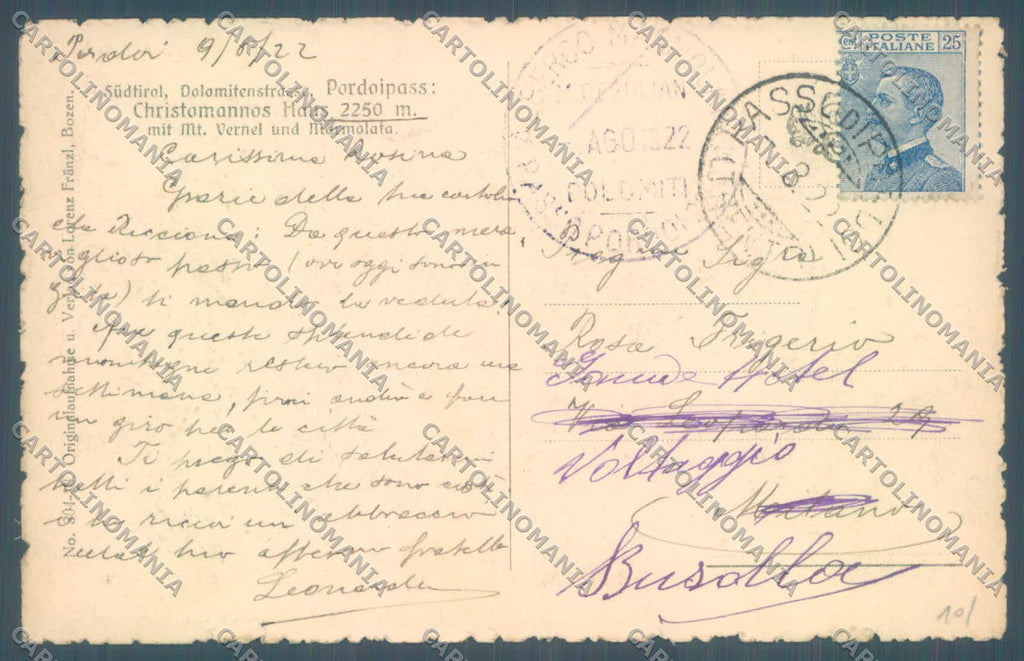 Pordoi 9/8/22
Südtirol, Dolomitenstrasse, Pordoipass:
Christomannos Haus 2250 m.
mit Mt. Vernel und Marmolata.
Carissima Rosina
Grazie della tua cartolina
da Riccione: Da questo mera
viglioso passo (ove oggi sono in
gita) ti mando la veduta.
Fra queste splendide
montagne resterò ancora una
settimana, poi andrò a fare
un giro per le città
Ti prego di salutarmi
tutti i parenti che sono costì
e tu ricevi un abbraccio
dal tuo affezmo fratello
Leonardo
No. 304 Originalaufnahme u. Verlag von Lorenz Fränzl, Bozen.
AGO 1922
DOLOMITI
PASSO PORDOI
PASSO DI PORDOI
8 22
POSTE ITALIANE 25
cent
Sigra
Rosa Frigerio
Grande Hotel
Via Leopardi 29
Voltaggio
Milano
Busalla
10/
CARTOLINOMANIA